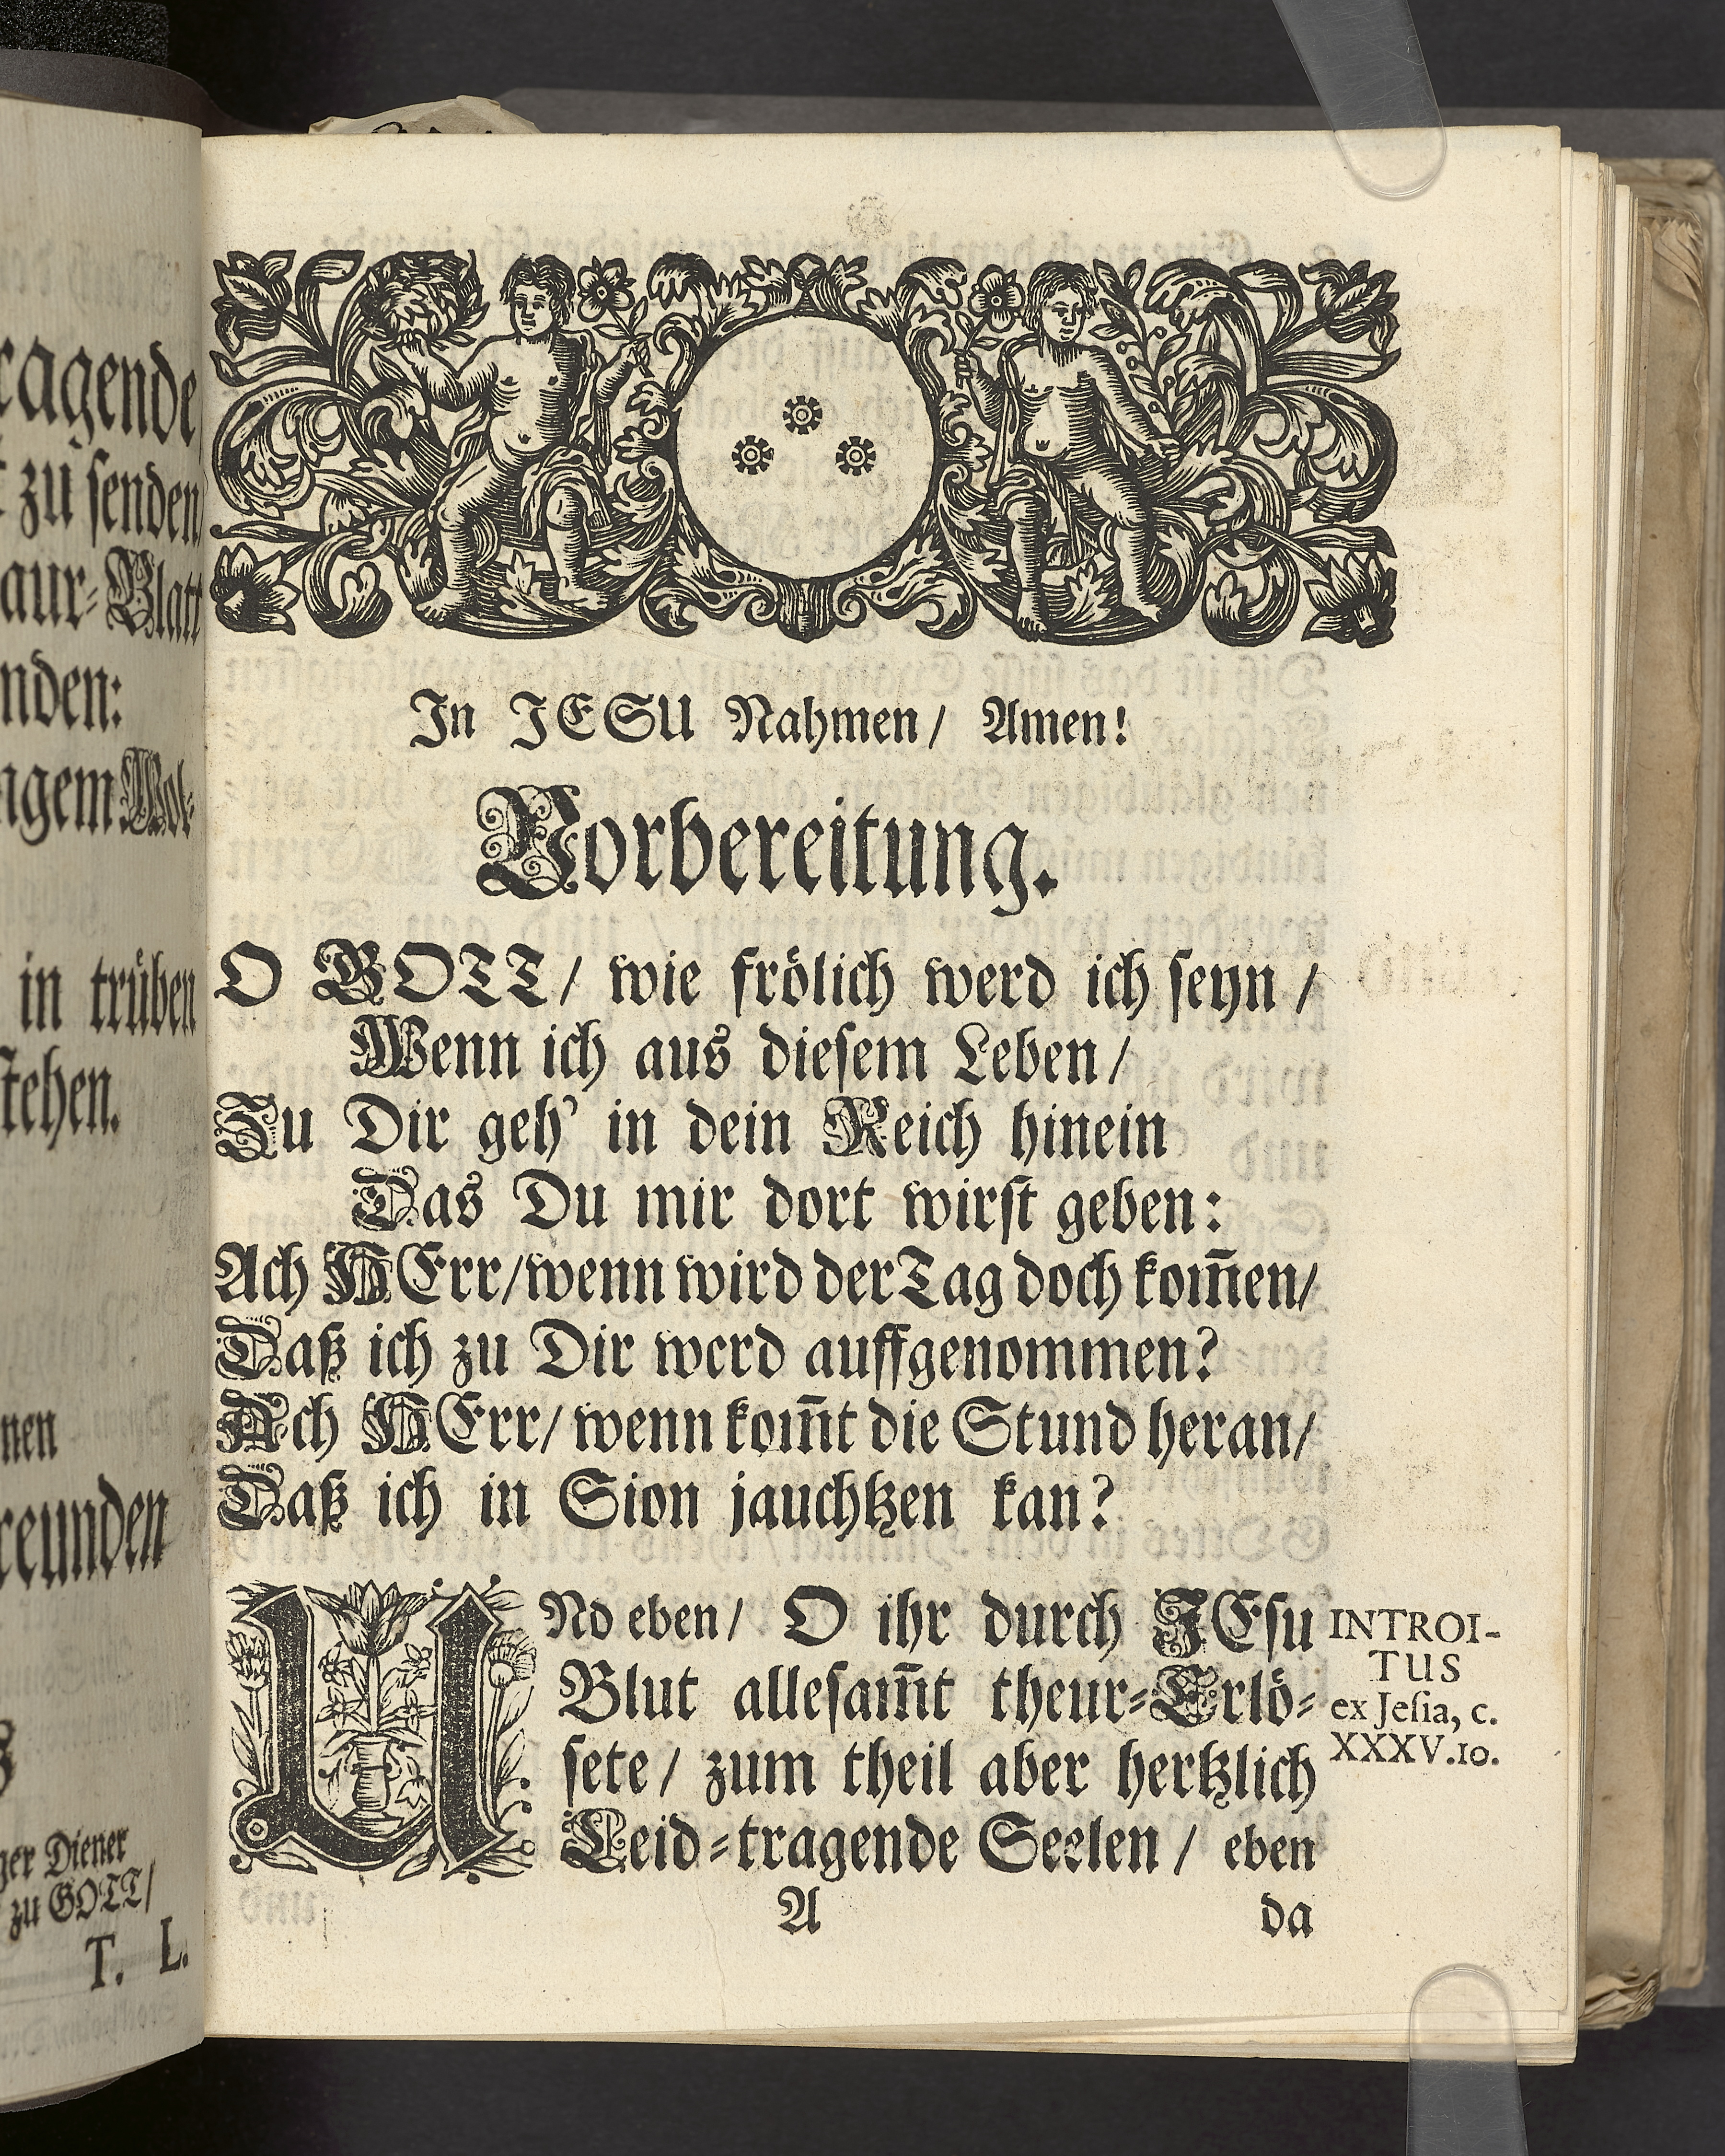 ragende
zu senden
aur-Blatt
nden:
ngem Wol-
in trüben
stehen.
nen
reunden
ger Diener
zu GOTT/
T. L.
In JESU Nahmen/ Amen!
Vorbereitung.
O GOTT/ wie frölich werd ich seyn /
Wenn ich aus diesem Leben/
Zu Dir geh' in dein Reich hinein
Das Du mir dort wirst geben:
Ach HErr/wenn wird der Tag doch kom̄en/
Daß ich zu Dir werd auffgenommen?
Ach HErr/ wenn kom̄t die Stund heran/
Daß ich in Sion jauchtzen kan?
UNd eben/ O ihr durch JEsu
Blut allesam̄t theur-Erlö-
sete/ zum theil aber hertzlich
Leid-tragende Seelen/ eben
INTROI-
TUS
ex Jesia, c.
XXXV.10.
A da